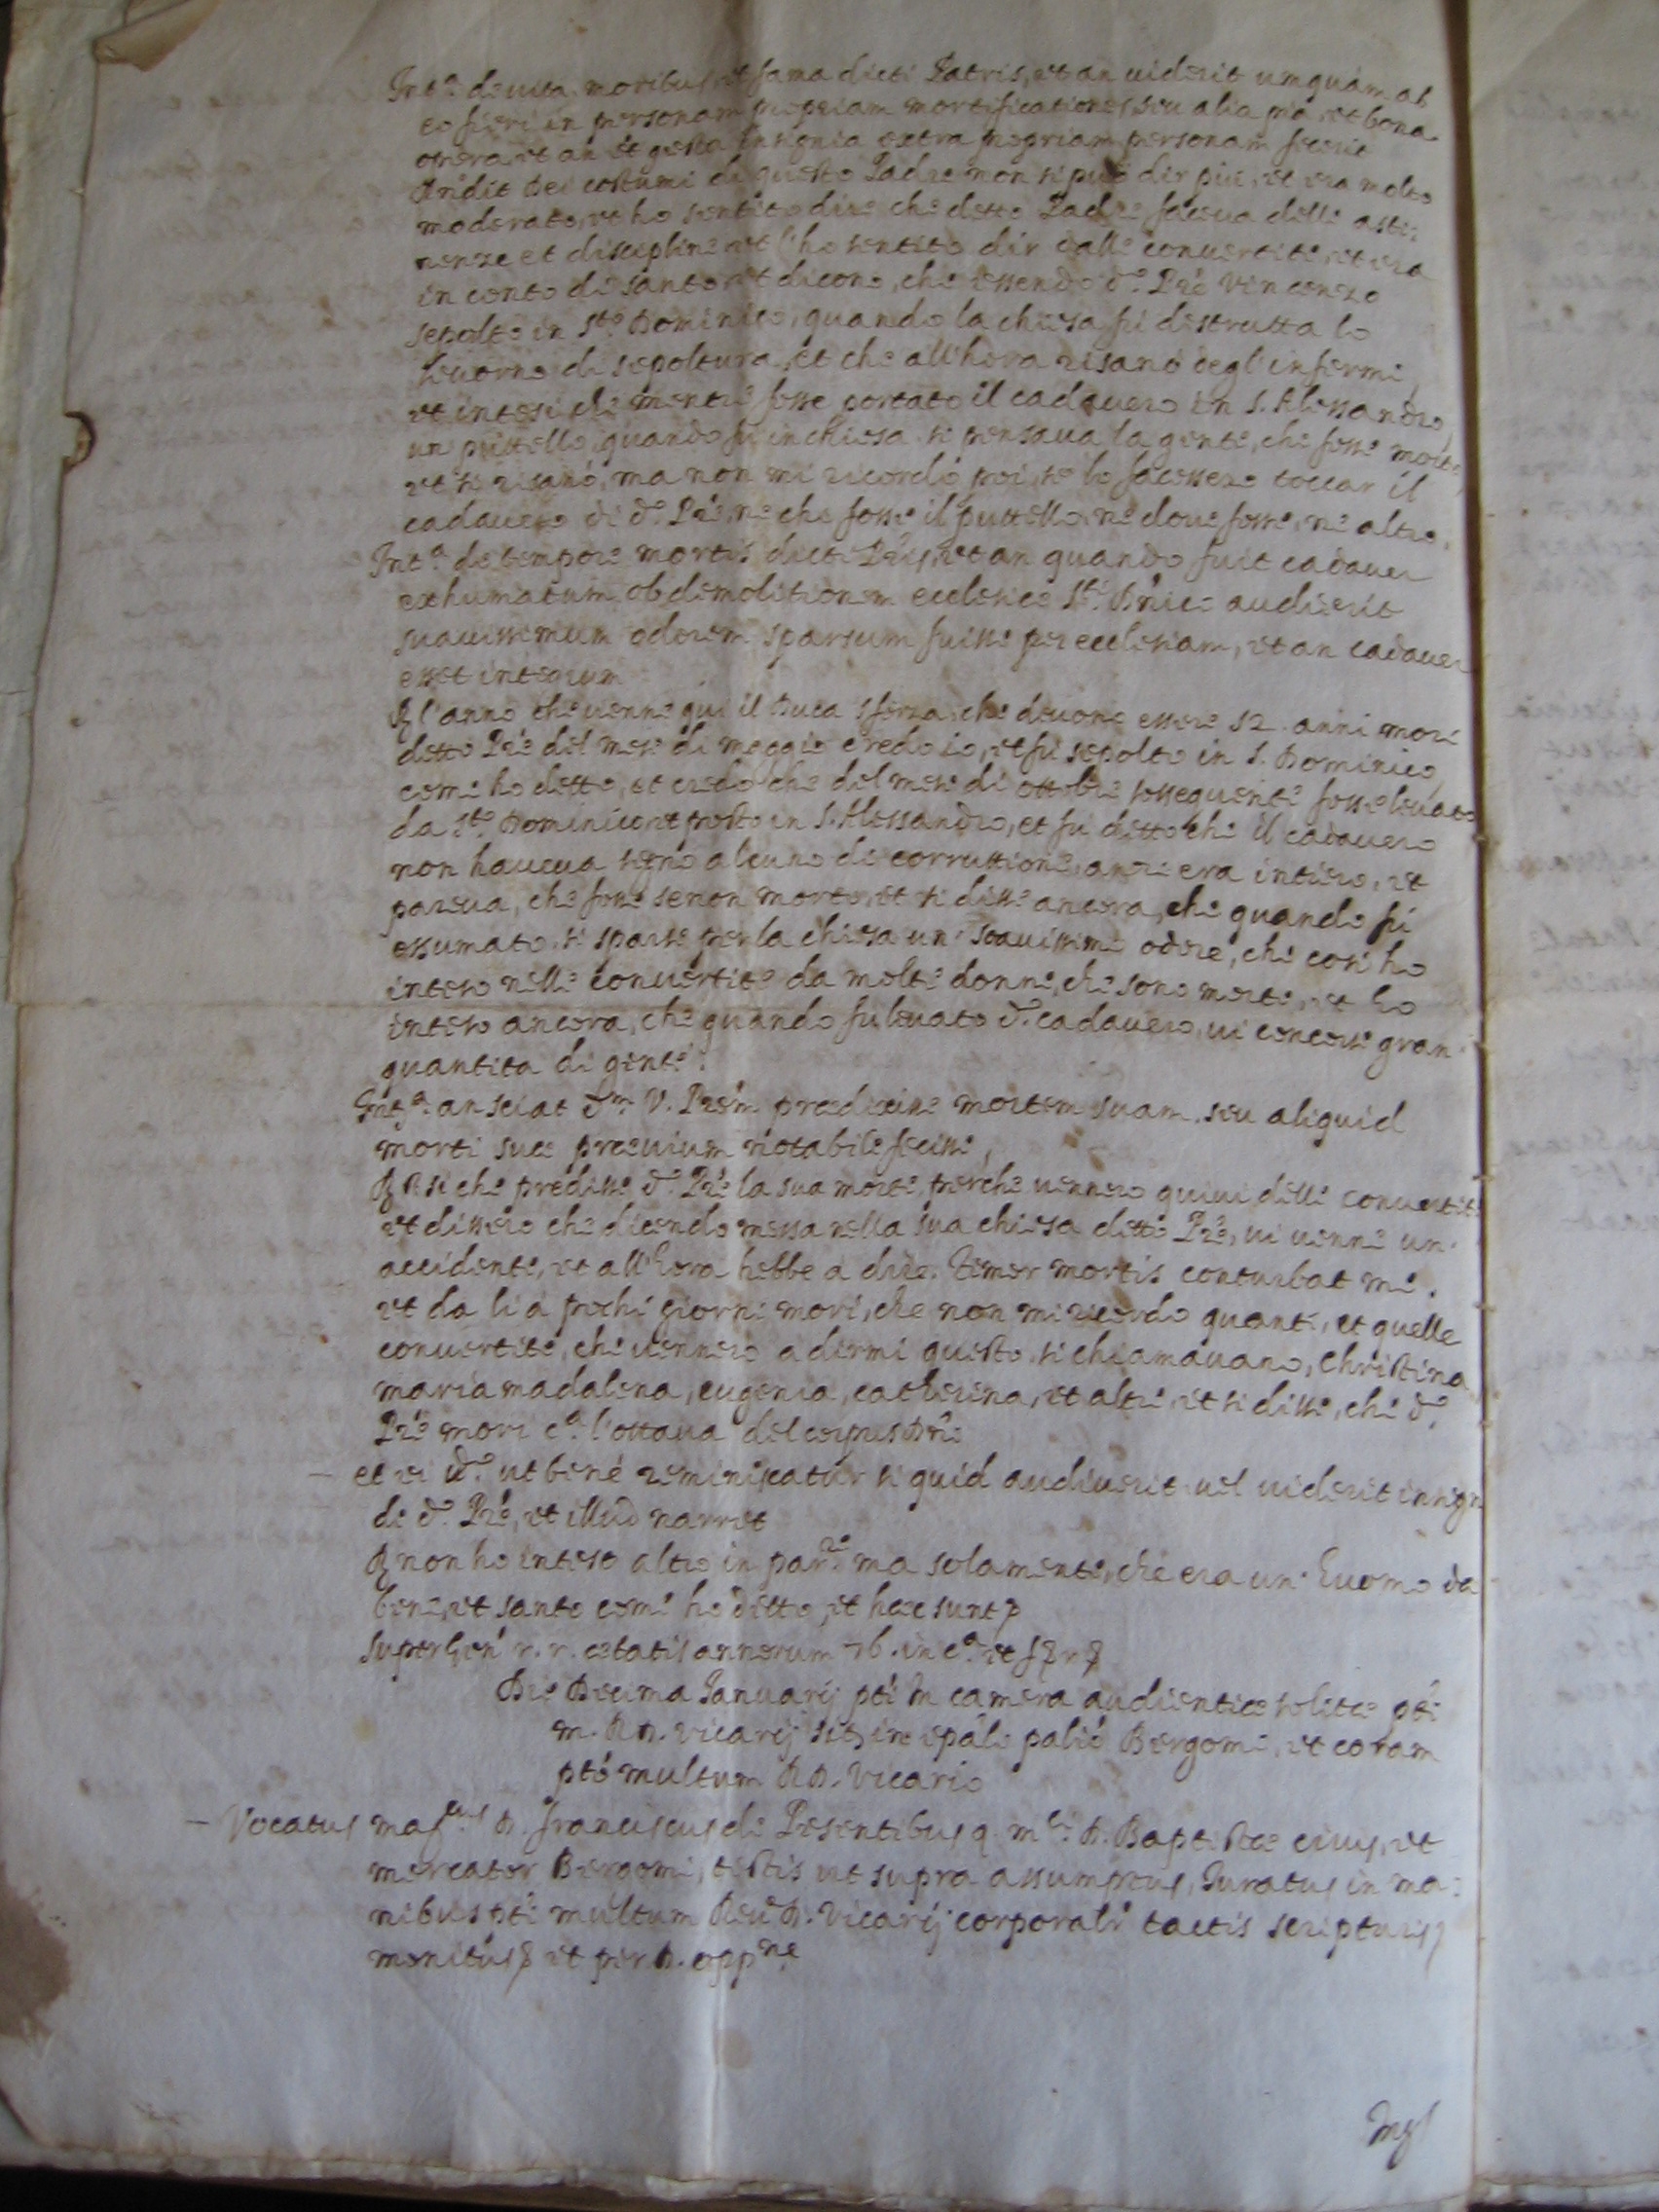 Int.a de vita, moribus, et fama dicti Patris, et an viderit umquam ab
eo fieri in personam propriam mortificationes, seu alia pia, et bona
opera, et an et gesta insignia extra propriam personam fecerit
Rndit Dei costumi di questo Padre non si può dir più, et era molto
moderato, et ho sentito dire che detto Padre faceva delle asti:
nenze et discipline, et l'ho sentito dir dalle convertite, et era
in conto di santo, et dicono, che essendo d.o Pre Vincenzo
sepolto in S.to Dominico, quando la chiesa fu distrutta lo
levorno di sepoltura, et che all'hora risanò degl'infermi,
et intesi che mentre fosse portato il cadavero in S. Alessandro,
un puttello, quando fu in chiesa si pensava la gente, che fosse morto,
et si risanò, ma non mi ricordo poi, se lo facessero toccar il
cadavero di d.o Pre, ne che fosse il puttello, ne dove fosse, ne altro.
Int.a de tempore mortis dicti Pris, et an quando fuit cadaver
exhumatum ob demolitionem ecclesiæ S.ti Dnici audierit
suavissimum odorem sparsum fuisse per ecclesiam, et an cadaver
esset integrum
R l'anno che venne qui il Duca Sforza, che devono essere 52 anni morì
detto Pre del mese di maggio credo io, et fu sepolto in S. Dominico,
come ho detto, et credo che del mese di ottobre sossequente fosse levato
da S.to Dominico, et posto in S. Alessandro, et fu detto che il cadavero
non haveva segno alcuno di corruttione, anzi era intiero, et
pareva, che fosse senon morto, et si disse ancora, che quando fu
essumato si sparse per la chiesa un soavissimo odore, che così ho
inteso nelle convertite da molte donne, che sono morte, et ho
inteso ancora, che quando fu levato d.o cadavero, vi concorse gran
quantita di gente.
Int.a an sciat d.m V. Prem prædixisse mortem suam, seu aliquid
morti suæ prævium notabile fecisse,
R R si che predisse d.o Pre la sua morte, perche vennero quivi delle convertite
et dissero che dicendo messa nella sua chiesa detto Pre, vi venne un
accidente, et all'hora hebbe a dire. Timor mortis conturbat me.
et da li a pochi giorni morì, che non mi ricordo quanti, et quelle
convertite, che vennero a dirmi questo si chiamavano, Christina
maria madalena, eugenia, catherina, et altre, et si disse, che d.o
Pre morì c.a l'ottava del corpus Dni
et ei d.o ut bene reminiscatur si quid audiverit, vel viderit insign
de d.o Pre, et illud narret
R non ho inteso altro in par.re ma solamente, che era un huomo da
bene, et santo come ho detto, et hæc sunt
super gen. r. r. ætatis annorum 76. in c.a et
Die Decima Januarij pti In camera audientiæ solitæ pti
m. RD. Vicarij sita in epali palio Bergomi, et coram
pto multum RD. Vicario
– Vocatus mag.cus D. Franciscus de Pesentibus q. m.ci D. Baptistæ civis, et
mercator Bergomi, testis ut supra assumptus, Juratus in ma:
nibus pti multum Reu D. Vicarij corporalr tactis scripturis
monitus et per D. opp.ne
Ing